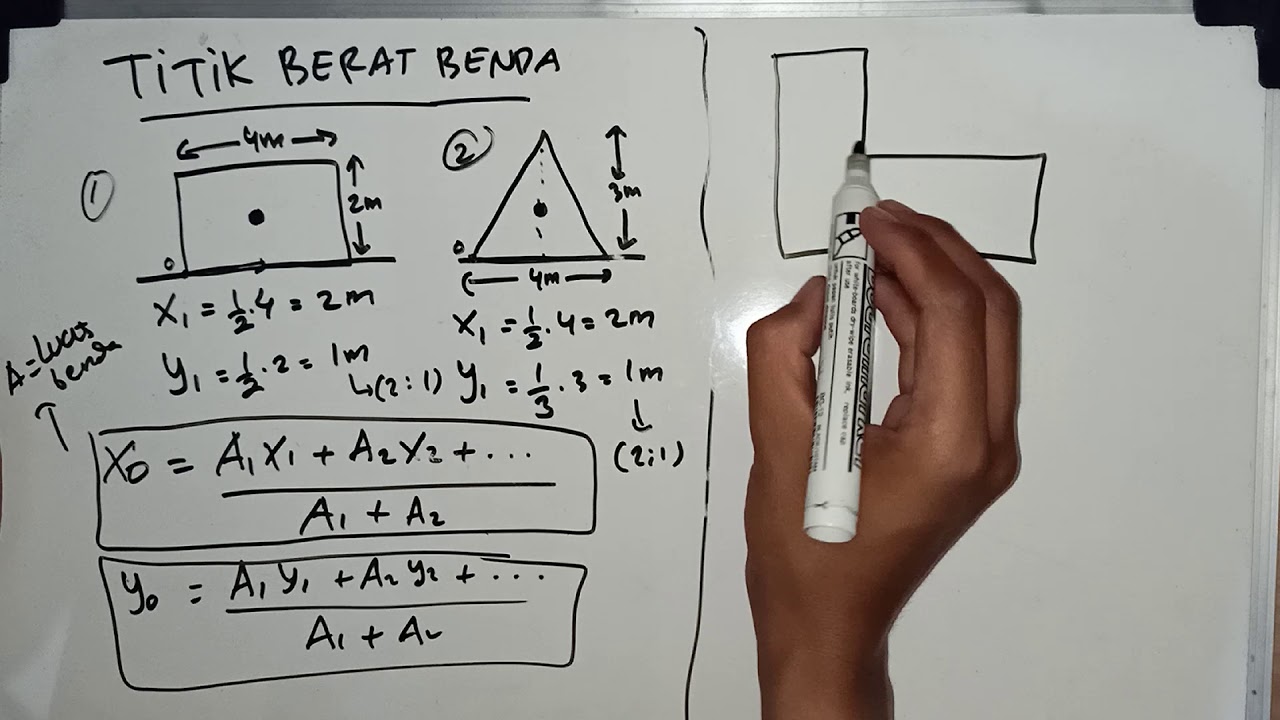 TiTiK BERAT BENDA
1
4m
2m
0
X₁ = 1/2 . 4 = 2m
Y₁ = 1/2 . 2 = 1m
↳(2:1)
2
3m
0
4m
X₁ = 1/2 . 4 = 2m
Y₁ = 1/3 . 3 = 1m
↓
(2:1)
A = Luas
benda
X₀ = A₁X₁ + A₂X₂ + ...
A₁ + A₂
Y₀ = A₁Y₁ + A₂Y₂ + ...
A₁ + A₂